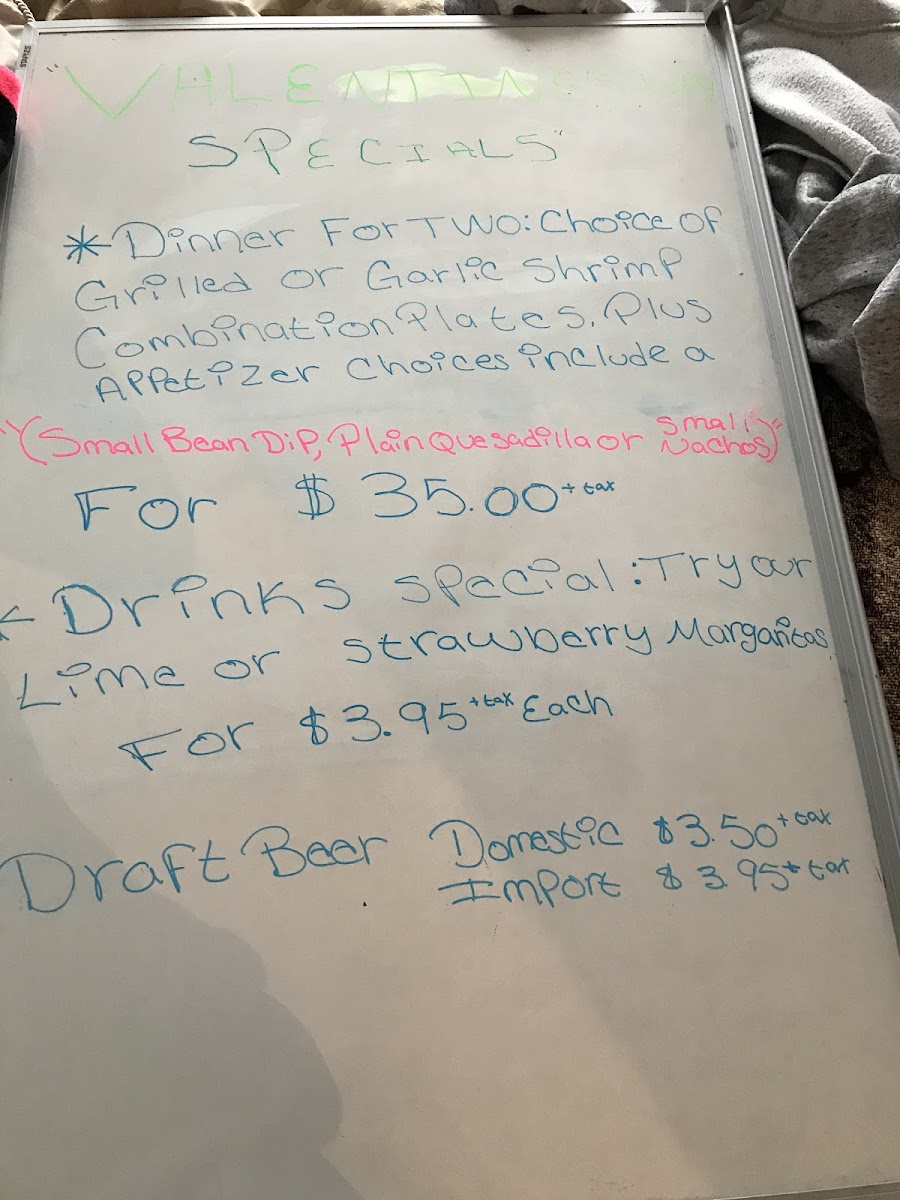 "VALENTINES
SPECIALS"
* Dinner For TWO: Choice of
Grilled or Garlic Shrimp
Combination Plates. Plus
Appetizer Choices include a
"(Small Bean Dip, Plain Quesadilla or Small Nachos)"
For $35.00 + tax
* Drinks special: Try our
Lime or strawberry Margaritas
For $3.95 + tax Each
Draft Beer Domestic $3.50 + tax
Import $3.95 + tax
STAPLES